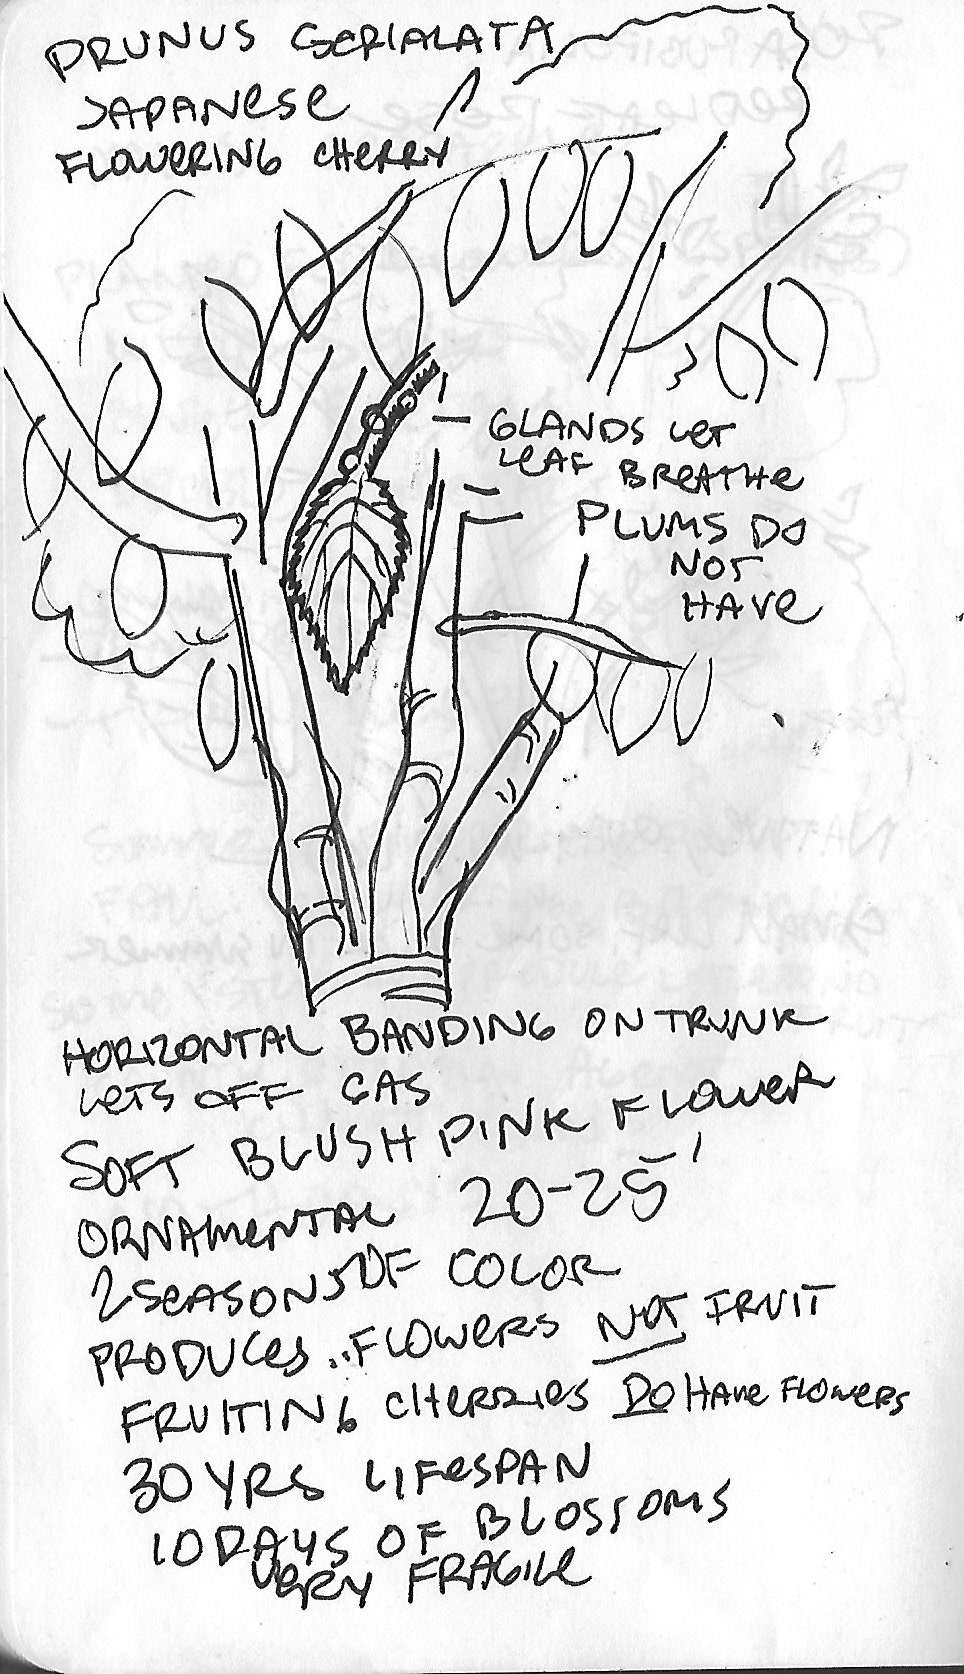 PRUNUS SERIALATA
JAPANESE
FLOWERING CHERRY
GLANDS LET
LEAF BREATHE
PLUMS DO
NOT
HAVE
HORIZONTAL BANDING ON TRUNK
LETS OFF GAS
SOFT BLUSH PINK FLOWER
ORNAMENTAL 20-25'
2 SEASONS OF COLOR
PRODUCES.. FLOWERS NOT FRUIT
FRUITING CHERRIES DO HAVE FLOWERS
30 YRS LIFESPAN
10 DAYS OF BLOSSOMS
VERY FRAGILE